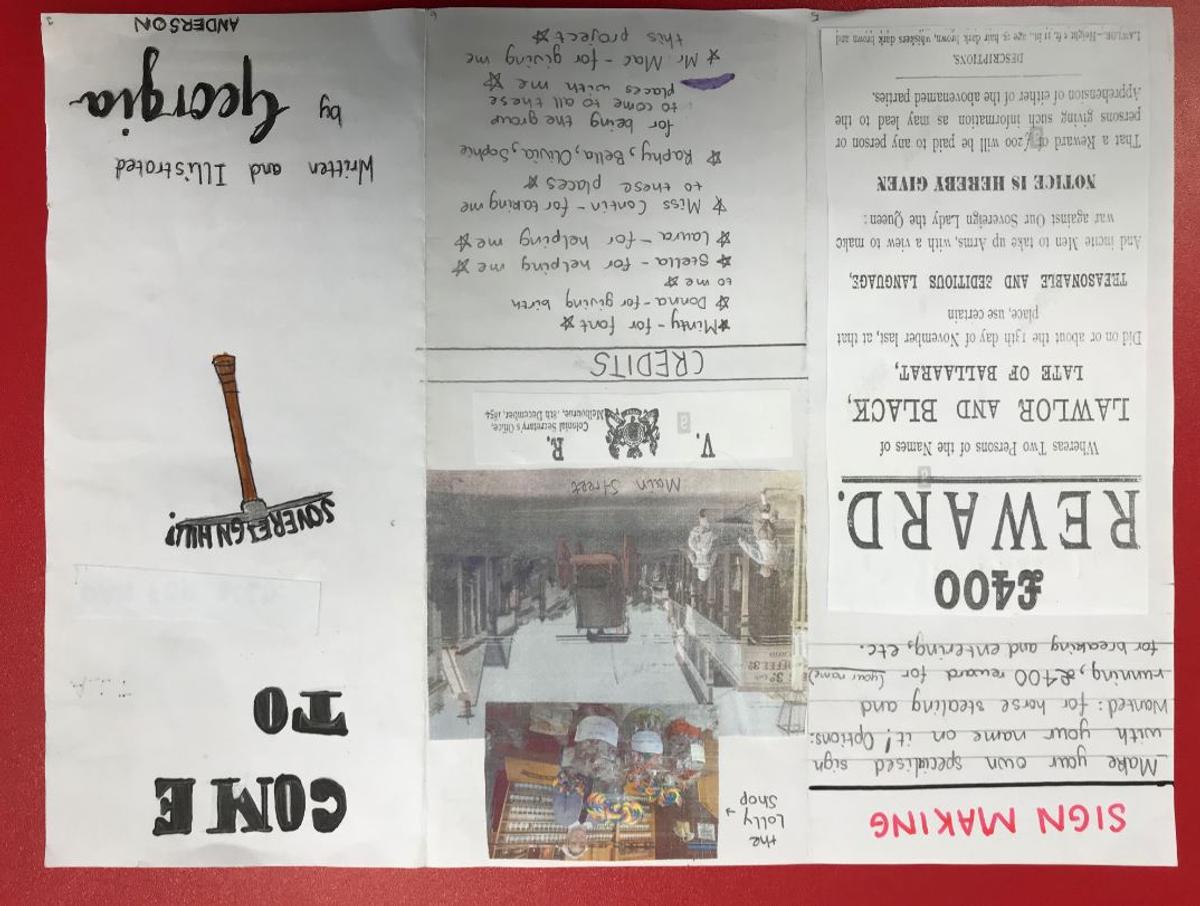 SIGN MAKING
Make your own specialised sign
with your name on it! Options:
Wanted: for horse stealing and
running, £400 reward for (your name)
for breaking and entering, etc.
£400
REWARD.
Whereas Two Persons of the Names of
LAWLOR AND BLACK,
LATE OF BALLAARAT,
Did on or about the 13th day of November last, at that
place, use certain
TREASONABLE AND SEDITIOUS LANGUAGE,
And incite Men to take up Arms, with a view to make
war against Our Sovereign Lady the Queen:
NOTICE IS HEREBY GIVEN
That a Reward of £200 will be paid to any person or
persons giving such information as may lead to the
Apprehension of either of the abovenamed parties.
DESCRIPTIONS.
LAWLOR.—Height 5 ft. 11 in., age 35 hair dark brown, whiskers dark brown and
5
the
Lolly
Shop
Main Street
V. R.
Colonial Secretary's Office,
Melbourne, 8th December, 1854
CREDITS
☆Minty - for font ☆
☆ Donna - for giving birth
to me ☆
☆ Stella - for helping me ☆
☆ Laura - for helping me ☆
☆ Miss Contin - for taking me
to these places ☆
☆ Raphy, Bella, Olivia, Sophie
for being the group
to come to all these
places with me ☆
☆ Mr Mac - for giving me
this project ☆
6
COME
TO
SOVEREIGN HILL!
Written and Illustrated
by Georgia
ANDERSON